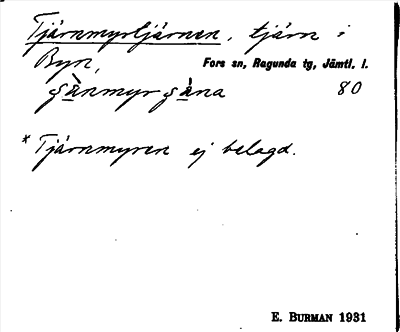 Tjärnmyrtjärnen, tjärn i
Byn, Fors sn, Ragunda tg, Jämtl. l.
80
*Tjärnmyren ej belagd.
E. BURMAN 1931